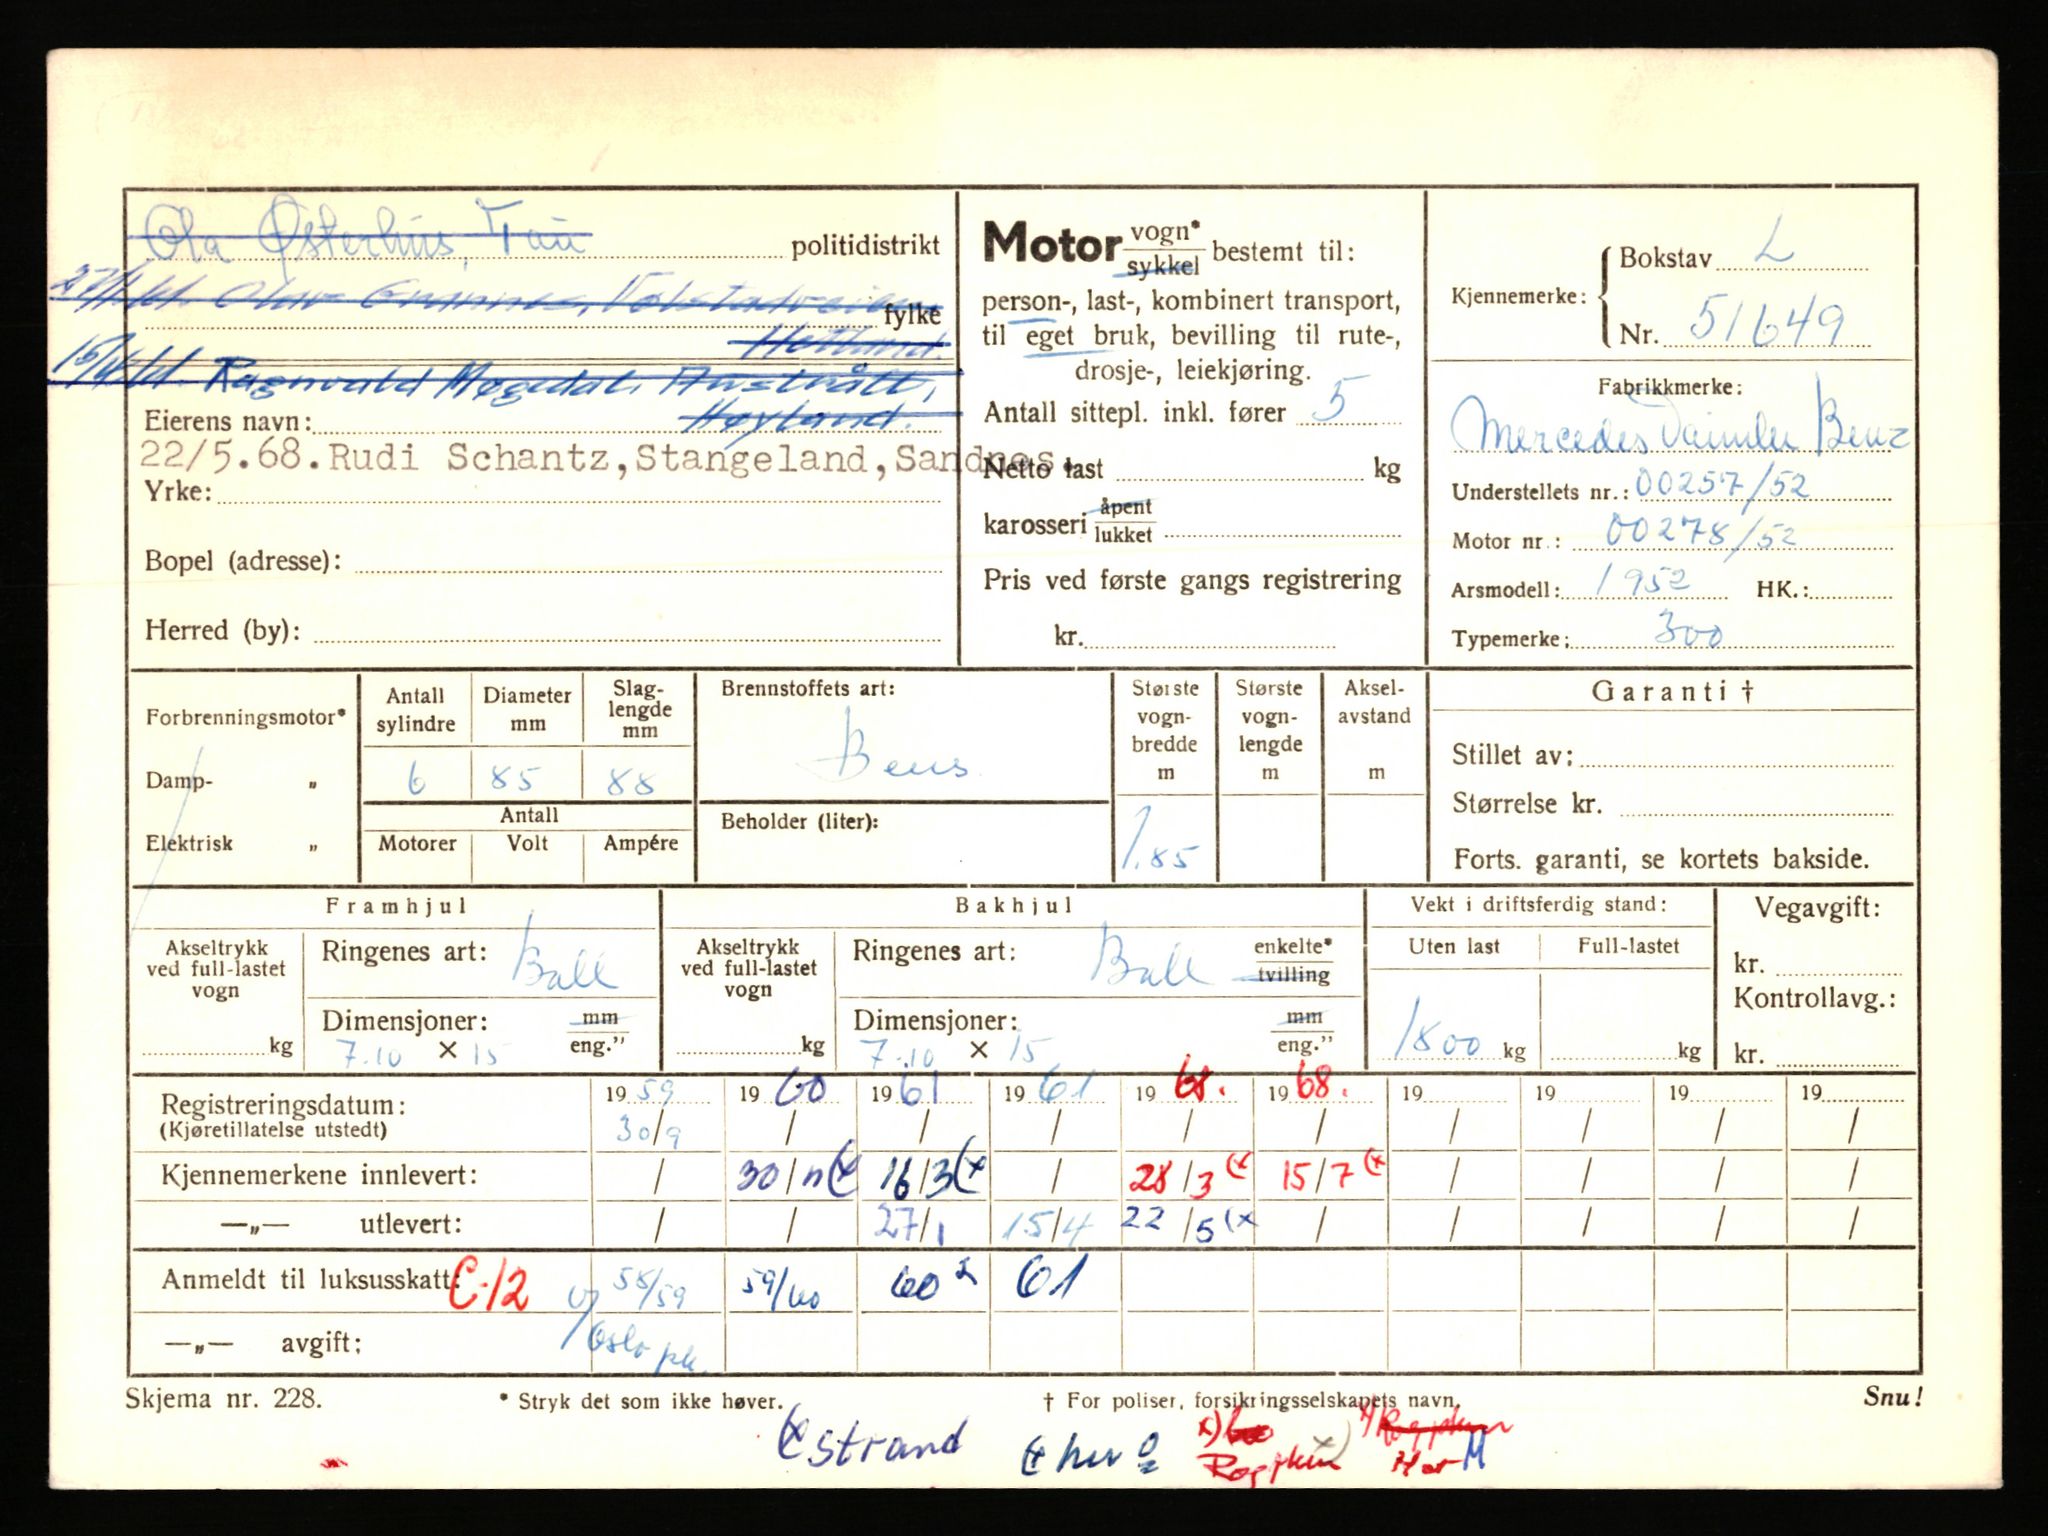 Ola Østerhus, Tau politidistrikt
27/1.61. Olav Grannes, Tølstadveien fylke
Hetland.
15/4.61. Ragnvald Møgedal, Austrått,
Eierens navn: Høyland.
22/5.68. Rudi Schantz, Stangeland, Sandnes.
Yrke:
Bopel (adresse):
Herred (by):
Motor vogn* / sykkel bestemt til:
person-, last-, kombinert transport,
til eget bruk, bevilling til rute-,
drosje-, leiekjøring.
Antall sittepl. inkl. fører 5
Netto last kg
karosseri åpent / lukket
Pris ved første gangs registrering
kr.
Kjennemerke: Bokstav L
Nr. 51649
Fabrikkmerke:
Mercedes Daimler Benz
Understellets nr.: 00257/52
Motor nr.: 00278/52
Arsmodell: 1952 HK.:
Typemerke: 300
Forbrenningsmotor*
Damp- „
Elektrisk „
Antall sylindre 6
Diameter mm 85
Slag-lengde mm 88
Antall
Motorer Volt Ampére
Brennstoffets art:
Bens
Beholder (liter):
Største vogn-bredde m 1.85
Største vogn-lengde m
Aksel-avstand m
Garanti †
Stillet av:
Størrelse kr.
Forts. garanti, se kortets bakside.
Framhjul
Akseltrykk ved full-lastet vogn kg
Ringenes art: Ball
Dimensjoner: mm / eng.”
7.10 × 15
Bakhjul
Akseltrykk ved full-lastet vogn kg
Ringenes art: Ball enkelte* / tvilling
Dimensjoner: mm / eng.”
7.10 × 15
Vekt i driftsferdig stand:
Uten last Full-lastet
1800 kg kg
Vegavgift:
kr.
Kontrollavg.:
kr.
Registreringsdatum: 1959 1960 1961 1961 1968. 1968. 19 19 19 19
(Kjøretillatelse utstedt) 30/9 / / / / / / / / /
Kjennemerkene innlevert: / 30/11 (x 16/3 (x / 28/3 (x 15/7 (x / / / /
—„— utlevert: / / 27/1 15/4 22/5 (x / / / / /
Anmeldt til luksusskatt: C-12 58/59 59/60 60² 61
—„— avgift: Oslo pk.
Skjema nr. 228. * Stryk det som ikke høver. † For poliser, forsikringsselskapets navn. Snu!
(x strand (x her x) Rogpkm Her M